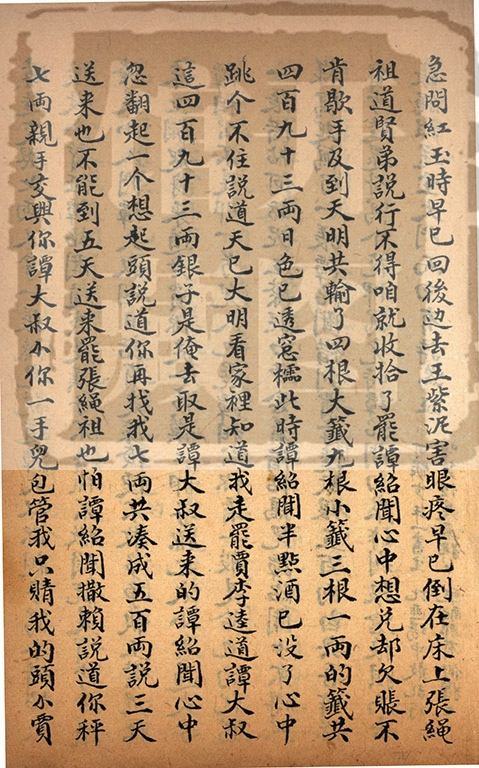 急問紅玉時早已回後边去王紫泥害眼疼早已倒在床上張绳
祖道賢弟説行不得咱就收拾了罷譚紹聞心中想兑却欠賬不
肯歇手及到天明共輸了四根大籤九根小籤三根一両的籤共
四百九十三両日色已透窓櫺此時譚紹聞半點酒已没了心中
跳个不住説道天已大明看家裡知道我走罷賈李逵道譚大叔
這四百九十三両銀子是俺去取是譚大叔送来的譚紹聞心中
忽翻起一个想起頭説道你再找我七両共凑成五百両説三天
送来也不能到五天送来罷張绳祖也怕譚紹聞撒賴説道你秤
七両親手交與你譚大叔小你一手兑包管我只睛我的頭小賈